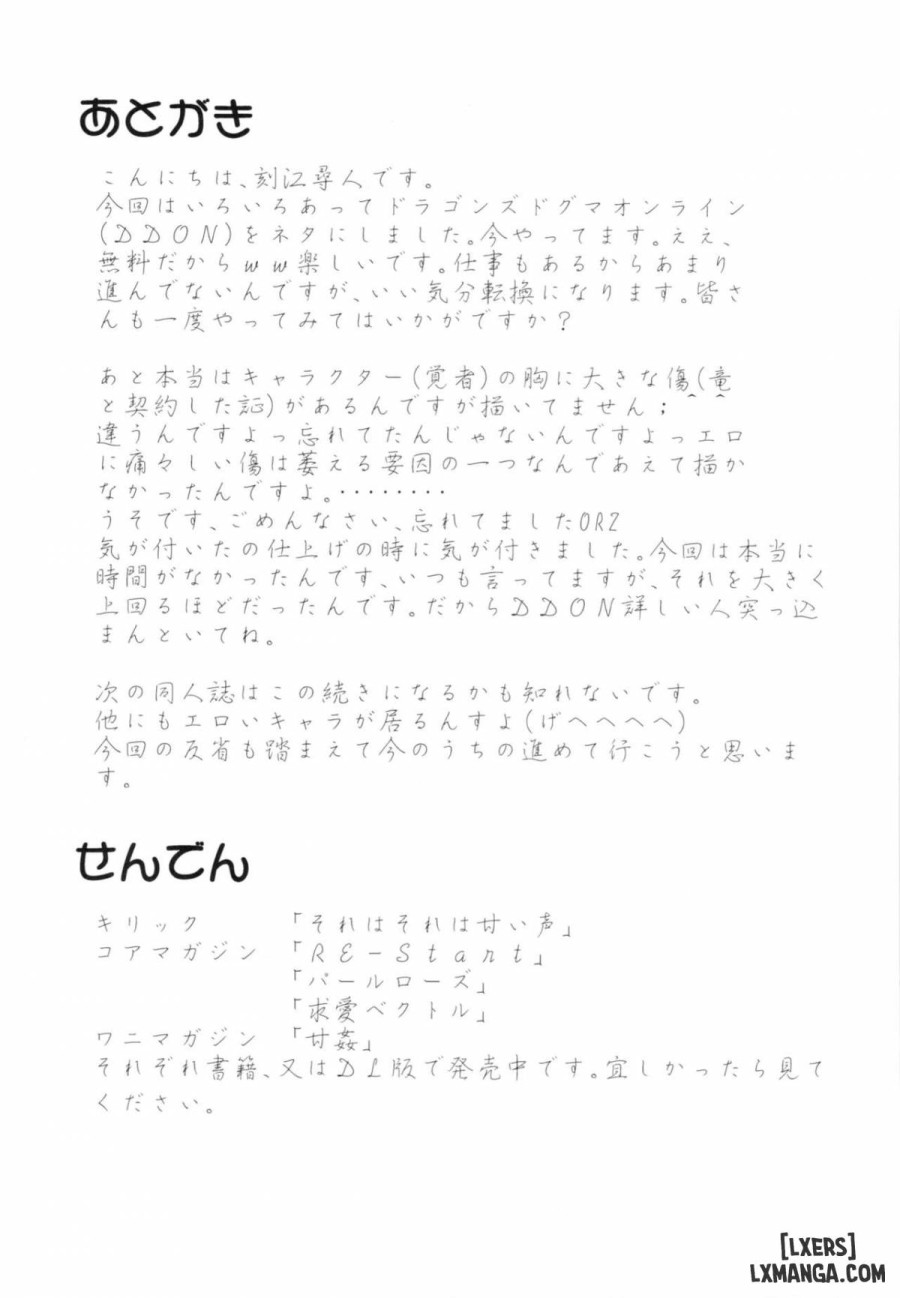 あとがき
こんにちは、刻江尋人です。
今回はいろいろあってドラゴンズドグマオンライン
(DDON)をネタにしました。今やってます。ええ、
無料だからww楽しいです。仕事もあるからあまり
進んでないんですが、いい気分転換になります。皆さ
んも一度やってみてはいかがですか？
あと本当はキャラクター(覚者)の胸に大きな傷(竜
と契約した証)があるんですが描いてません；＾＾
違うんですよっ忘れてたんじゃないんですよっエロ
に痛々しい傷は萎える要因の一つなんであえて描か
なかったんですよ。‥‥‥‥
うそです、ごめんなさい、忘れてましたORZ
気が付いたの仕上げの時に気が付きました。今回は本当に
時間がなかったんです、いつも言ってますが、それを大きく
上回るほどだったんです。だからDDON詳しい人突っ込
まんといてね。
次の同人誌はこの続きになるかも知れないです。
他にもエロいキャラが居るんすよ(げへへへへ)
今回の反省も踏まえて今のうちの進めて行こうと思いま
す。
せんでん
キリック 「それはそれは甘い声」
コアマガジン 「RE-Start」
「パールローズ」
「求愛ベクトル」
ワニマガジン 「甘姦」
それぞれ書籍、又はDL版で発売中です。宜しかったら見て
ください。
[LXERS]
LXMANGA.COM